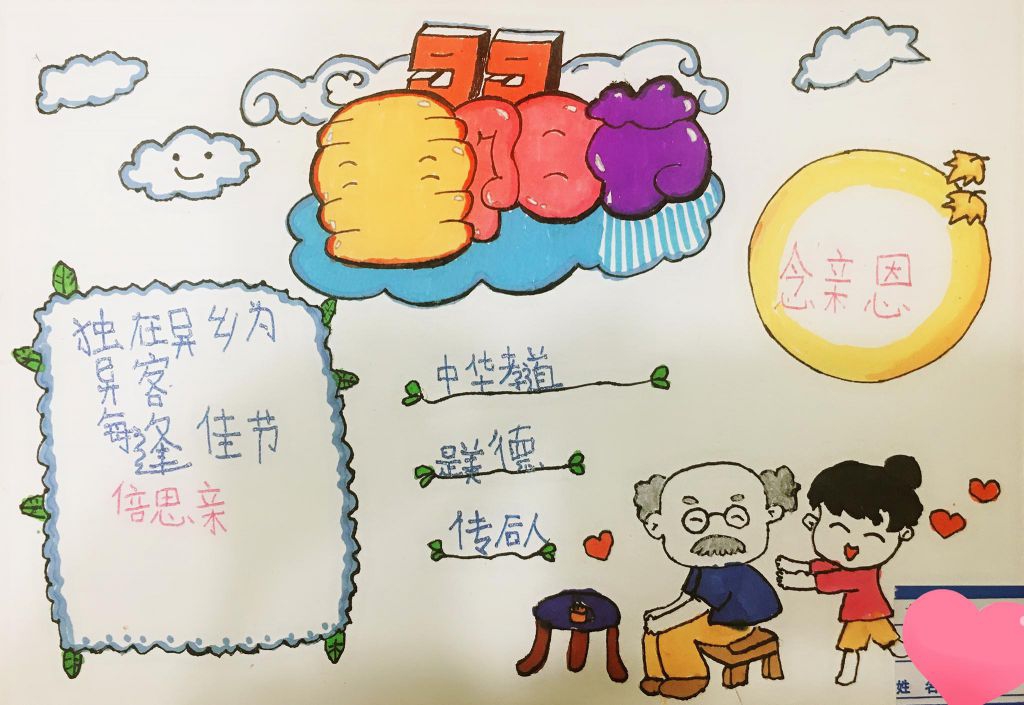 99
重阳节
念亲恩
独在异乡为
异客
每逢佳节
倍思亲
中华教道
是美德
传后人
姓名